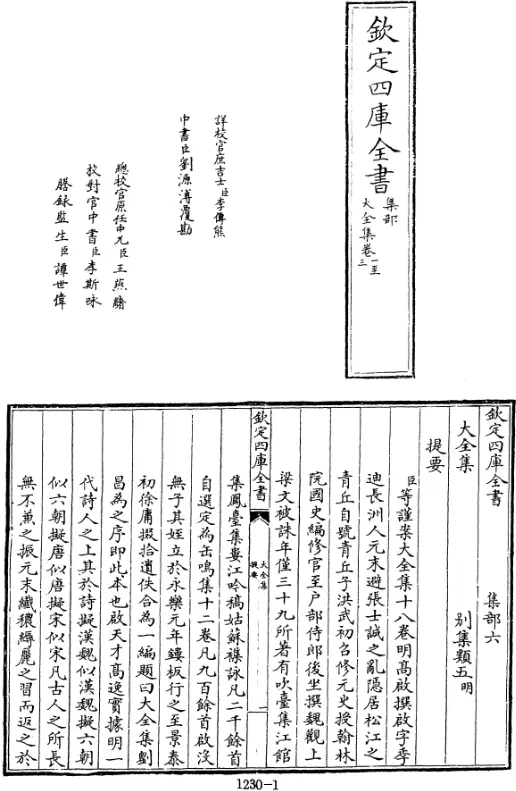 欽定四庫全書
集部
大全集卷一至三
詳校官庶吉士臣李傳熊
中書臣劉源溥覆勘
總校官原任中允臣王燕緒
校對官中書臣李斯咏
謄錄監生臣譚世偉
欽定四庫全書 集部六
大全集 別集類五明
提要
臣等謹案大全集十八卷明髙啟撰啟字季
迪長洲人元末避張士誠之亂隱居松江之
青丘自號青丘子洪武初召修元史授翰林
院國史編修官至户部侍郎後坐撰魏觀上
梁文被誅年僅三十九所著有吹臺集江館
欽定四庫全書
大全集
提要
一
集鳳臺集婁江吟稿姑蘇襍詠凡二千餘首
自選定為缶鳴集十二卷凡九百餘首啟沒
無子其姪立於永樂元年鏤板行之至景泰
初徐庸掇拾遺佚合為一編題曰大全集劉
昌為之序即此本也啟天才髙逸實據明一
代詩人之上其於詩擬漢魏似漢魏擬六朝
似六朝擬唐似唐擬宋似宋凡古人之所長
無不兼之振元末纖穠縟麗之習而返之於
1230-1